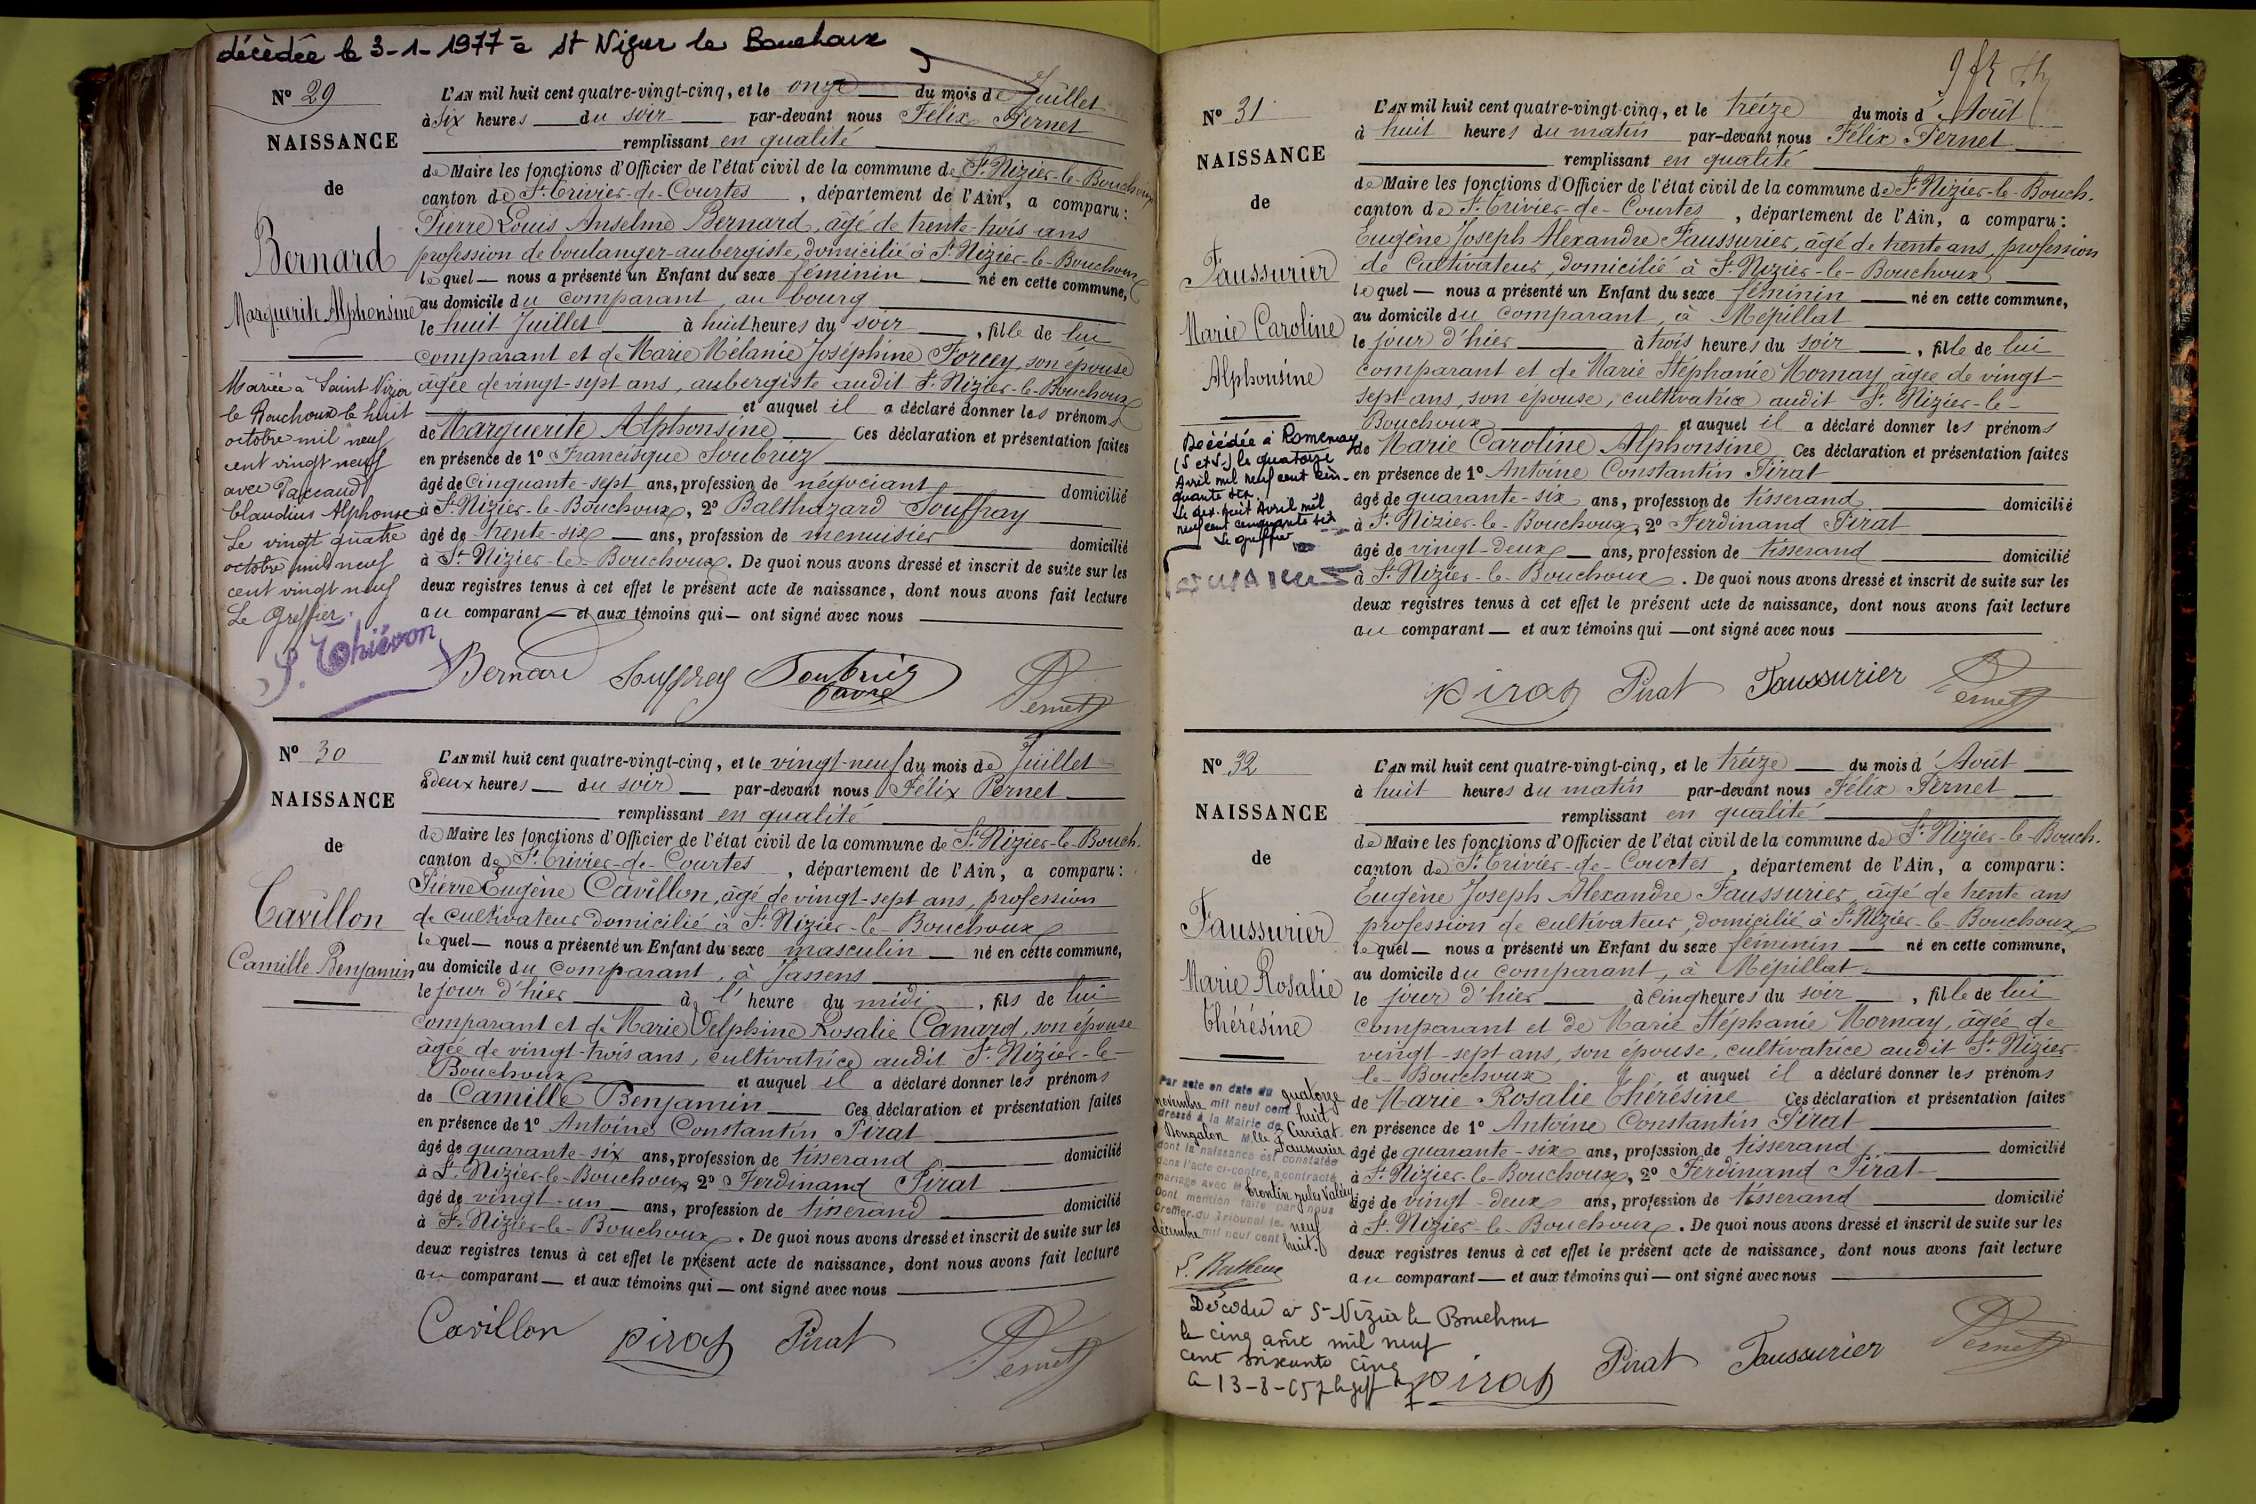 décédée le 3-1-1977 à St Nizier le Bouchoux
N° 29
NAISSANCE
de
Bernard
Marguerite Alphonsine
Mariée à Saint Nizier
le Bouchoux le huit
octobre mil neuf
cent vingt neuf
avec Paccaud
Claudius Alphonse
Le vingt quatre
octobre mil neuf
cent vingt neuf
Le Greffier.
S. Thiévon
L'AN mil huit cent quatre-vingt-cinq, et le onze du mois de Juillet
à six heures du soir par-devant nous Félix Pernet
remplissant en qualité
de Maire les fonctions d'Officier de l'état civil de la commune de St. Nizier-le-Bouchoux
canton de St. Trivier-de-Courtes, département de l'Ain, a comparu:
Pierre Louis Anselme Bernard, âgé de trente-trois ans
profession de boulanger-aubergiste, domicilié à St. Nizier-le-Bouchoux
lequel — nous a présenté un Enfant du sexe féminin — né en cette commune,
au domicile du comparant, au bourg
le huit Juillet à huit heures du soir, fille de lui
comparant et de Marie Mélanie Joséphine Forcey, son épouse
âgée de vingt-sept ans, aubergiste audit St. Nizier-le-Bouchoux
et auquel il a déclaré donner les prénoms
de Marguerite Alphonsine Ces déclaration et présentation faites
en présence de 1° Francisque Soubriez
âgé de cinquante-sept ans, profession de négociant domicilié
à St. Nizier-le-Bouchoux, 2° Balthazard Souffray
âgé de trente-six — ans, profession de menuisier domicilié
à St. Nizier-le-Bouchoux. De quoi nous avons dressé et inscrit de suite sur les
deux registres tenus à cet effet le présent acte de naissance, dont nous avons fait lecture
au comparant — et aux témoins qui — ont signé avec nous
Bernard Souffrey Soubriez Pernet
N° 30
NAISSANCE
de
Cavillon
Camille Benjamin
L'AN mil huit cent quatre-vingt-cinq, et le vingt-neuf du mois de Juillet
à deux heures — du soir — par-devant nous Félix Pernet
remplissant en qualité
de Maire les fonctions d'Officier de l'état civil de la commune de St. Nizier-le-Bouch.
canton de St. Trivier-de-Courtes, département de l'Ain, a comparu:
Pierre Eugène Cavillon, âgé de vingt-sept ans, profession
de cultivateur domicilié à St. Nizier-le-Bouchoux
lequel — nous a présenté un Enfant du sexe masculin — né en cette commune,
au domicile du comparant, à Jassens
le jour d'hier à l'heure du midi, fils de lui
comparant et de Marie Delphine Rosalie Canard, son épouse
âgée de vingt-trois ans, cultivatrice audit St. Nizier-le-
Bouchoux et auquel il a déclaré donner les prénoms
de Camille Benjamin Ces déclaration et présentation faites
en présence de 1° Antoine Constantin Pirat
âgé de quarante-six ans, profession de tisserand domicilié
à St. Nizier-le-Bouchoux 2° Ferdinand Pirat
âgé de vingt-un ans, profession de tisserand domicilié
à St. Nizier-le-Bouchoux. De quoi nous avons dressé et inscrit de suite sur les
deux registres tenus à cet effet le présent acte de naissance, dont nous avons fait lecture
au comparant — et aux témoins qui — ont signé avec nous
Cavillon Pirat Pirat Pernet
N° 31
NAISSANCE
de
Faussurier
Marie Caroline
Alphonsine
Décédée à Romenay
(S et L) le quatorze
Avril mil neuf cent cin-
quante six.
Le dix-huit Avril mil
neuf cent cinquante six
Le greffier
L'AN mil huit cent quatre-vingt-cinq, et le treize du mois d'Août
à huit heures du matin par-devant nous Félix Pernet
remplissant en qualité
de Maire les fonctions d'Officier de l'état civil de la commune de St. Nizier-le-Bouch.
canton de St. Trivier-de-Courtes, département de l'Ain, a comparu:
Eugène Joseph Alexandre Faussurier, âgé de trente ans, profession
de cultivateur, domicilié à St. Nizier-le-Bouchoux
lequel — nous a présenté un Enfant du sexe féminin — né en cette commune,
au domicile du comparant, à Mépillat
le jour d'hier à trois heures du soir, fille de lui
comparant et de Marie Stéphanie Mornay âgée de vingt-
sept ans, son épouse, cultivatrice audit St. Nizier-le-
Bouchoux et auquel il a déclaré donner les prénoms
de Marie Caroline Alphonsine Ces déclaration et présentation faites
en présence de 1° Antoine Constantin Pirat
âgé de quarante-six ans, profession de tisserand domicilié
à St. Nizier-le-Bouchoux, 2° Ferdinand Pirat
âgé de vingt-deux — ans, profession de tisserand domicilié
à St. Nizier-le-Bouchoux. De quoi nous avons dressé et inscrit de suite sur les
deux registres tenus à cet effet le présent acte de naissance, dont nous avons fait lecture
au comparant — et aux témoins qui — ont signé avec nous
Pirat Pirat Faussurier Pernet
N° 32
NAISSANCE
de
Faussurier
Marie Rosalie
Thérésine
Par acte en date du quatorze
novembre mil neuf cent huit
dressé à la Mairie de Curciat
Dongalon Mlle Faussurier
dont la naissance est constatée
dans l'acte ci-contre, a contracté
mariage avec M Trontin Jules Valéry
Dont mention faite par nous
Greffier du Tribunal le neuf
décembre mil neuf cent huit.
Décédée à St-Nizier le Bouchoux
le cinq août mil neuf
cent soixante cinq
L'AN mil huit cent quatre-vingt-cinq, et le treize du mois d'Août
à huit heures du matin par-devant nous Félix Pernet
remplissant en qualité
de Maire les fonctions d'Officier de l'état civil de la commune de St. Nizier-le-Bouch.
canton de St. Trivier-de-Courtes, département de l'Ain, a comparu:
Eugène Joseph Alexandre Faussurier, âgé de trente ans
profession de cultivateur, domicilié à St. Nizier-le-Bouchoux
lequel — nous a présenté un Enfant du sexe féminin — né en cette commune,
au domicile du comparant, à Mépillat
le jour d'hier à cinq heures du soir, fille de lui
comparant et de Marie Stéphanie Mornay, âgée de
vingt-sept ans, son épouse, cultivatrice audit St. Nizier-
le-Bouchoux et auquel il a déclaré donner les prénoms
de Marie Rosalie Thérésine Ces déclaration et présentation faites
en présence de 1° Antoine Constantin Pirat
âgé de quarante-six ans, profession de tisserand domicilié
à St. Nizier-le-Bouchoux, 2° Ferdinand Pirat
âgé de vingt-deux ans, profession de tisserand domicilié
à St. Nizier-le-Bouchoux. De quoi nous avons dressé et inscrit de suite sur les
deux registres tenus à cet effet le présent acte de naissance, dont nous avons fait lecture
au comparant — et aux témoins qui — ont signé avec nous
Pirat Pirat Faussurier Pernet